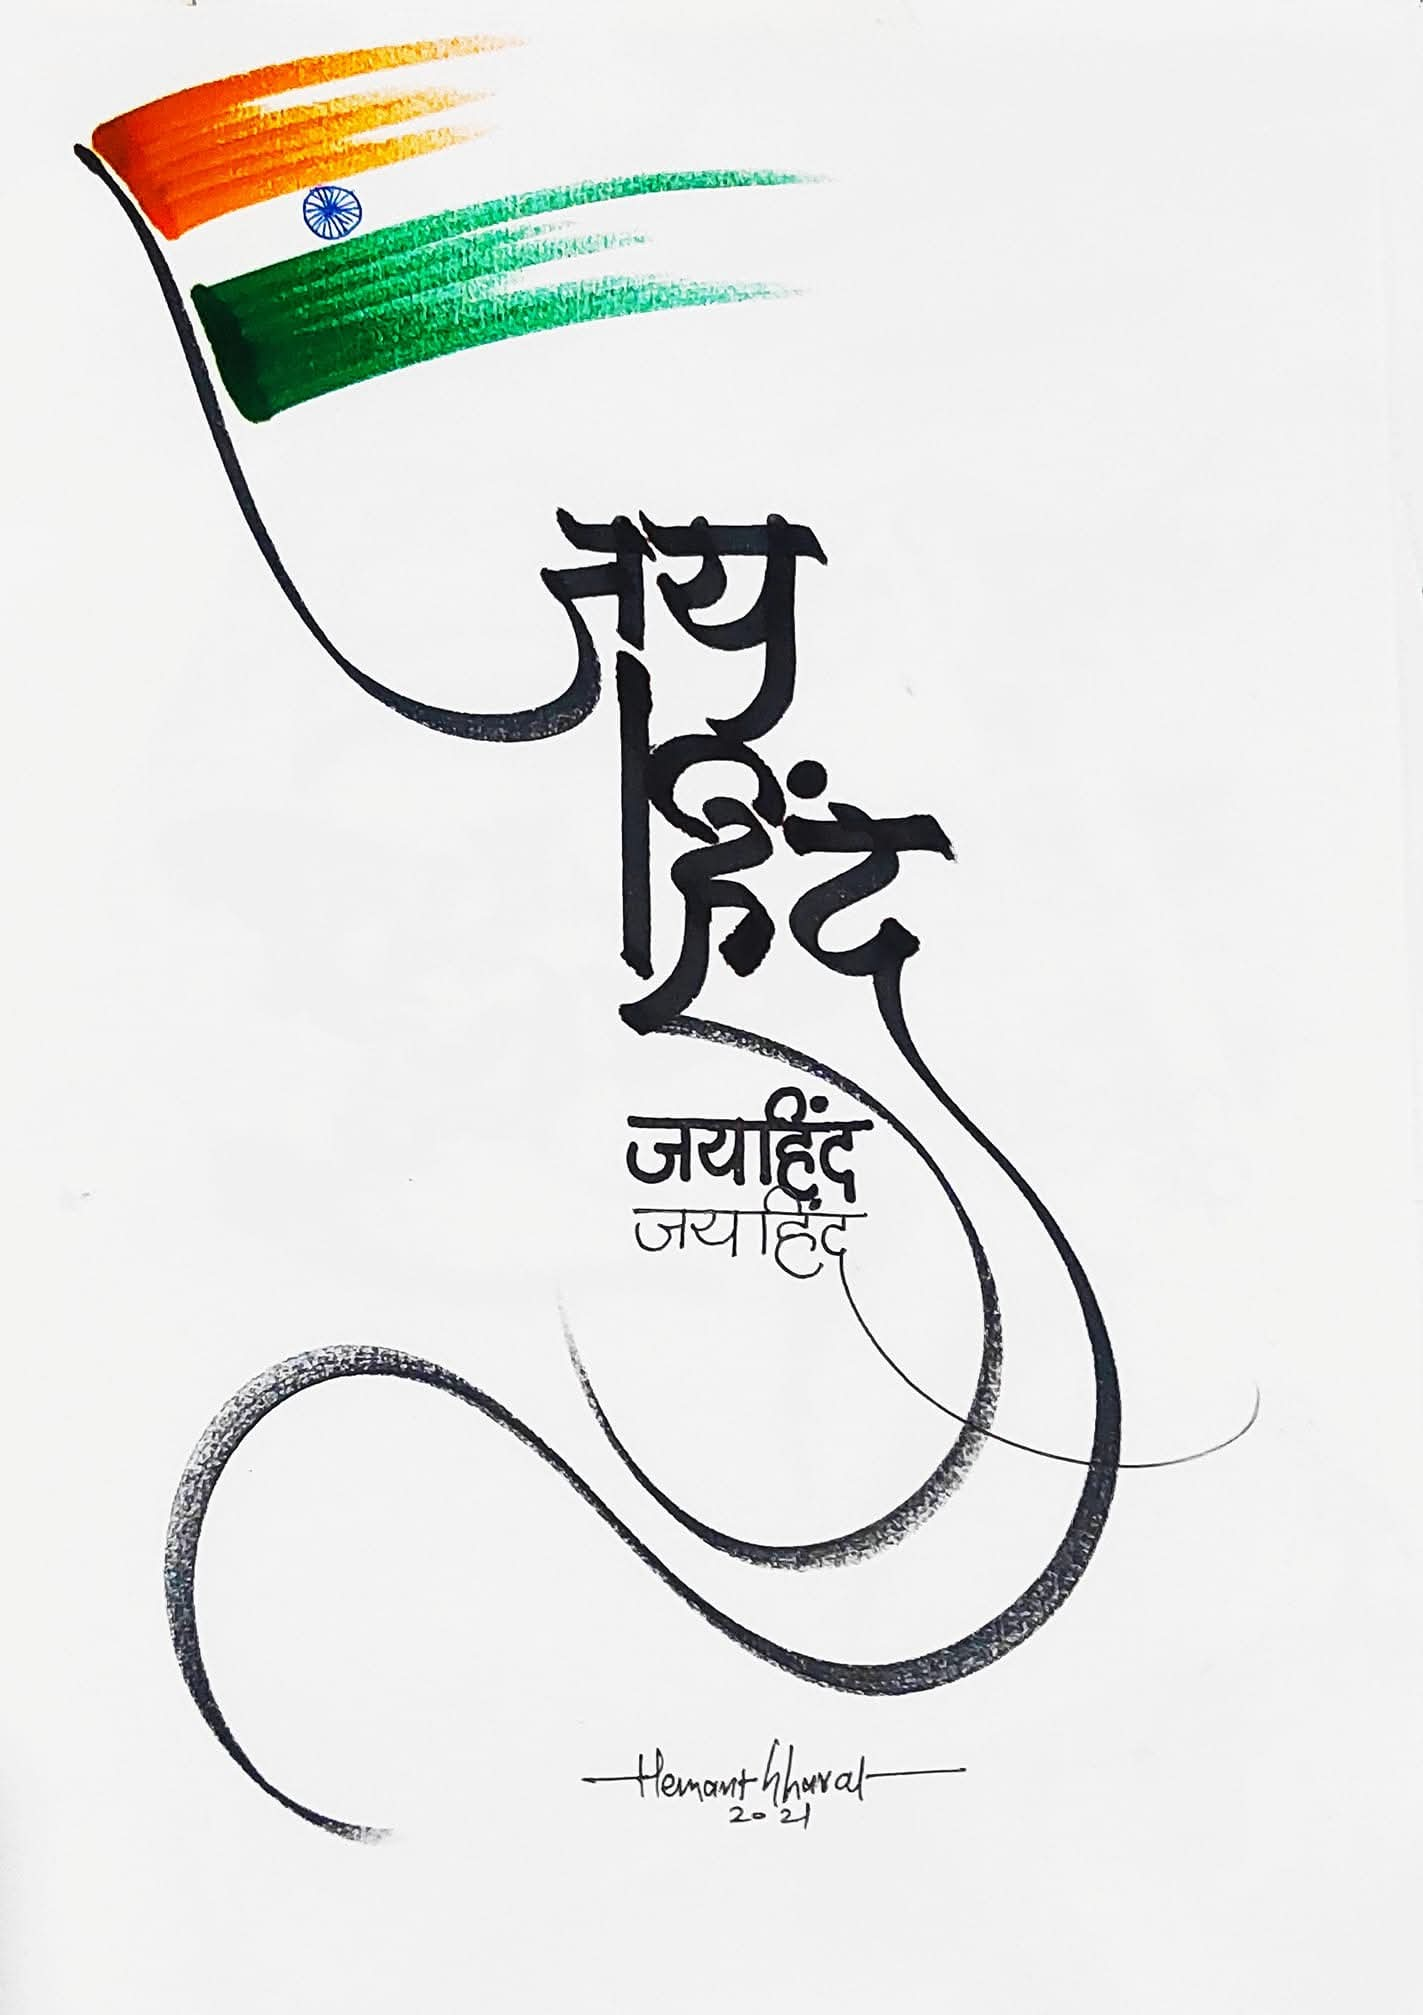 जय
हिंद
जयहिंद
जयहिंद
Hemant Gharat
2021